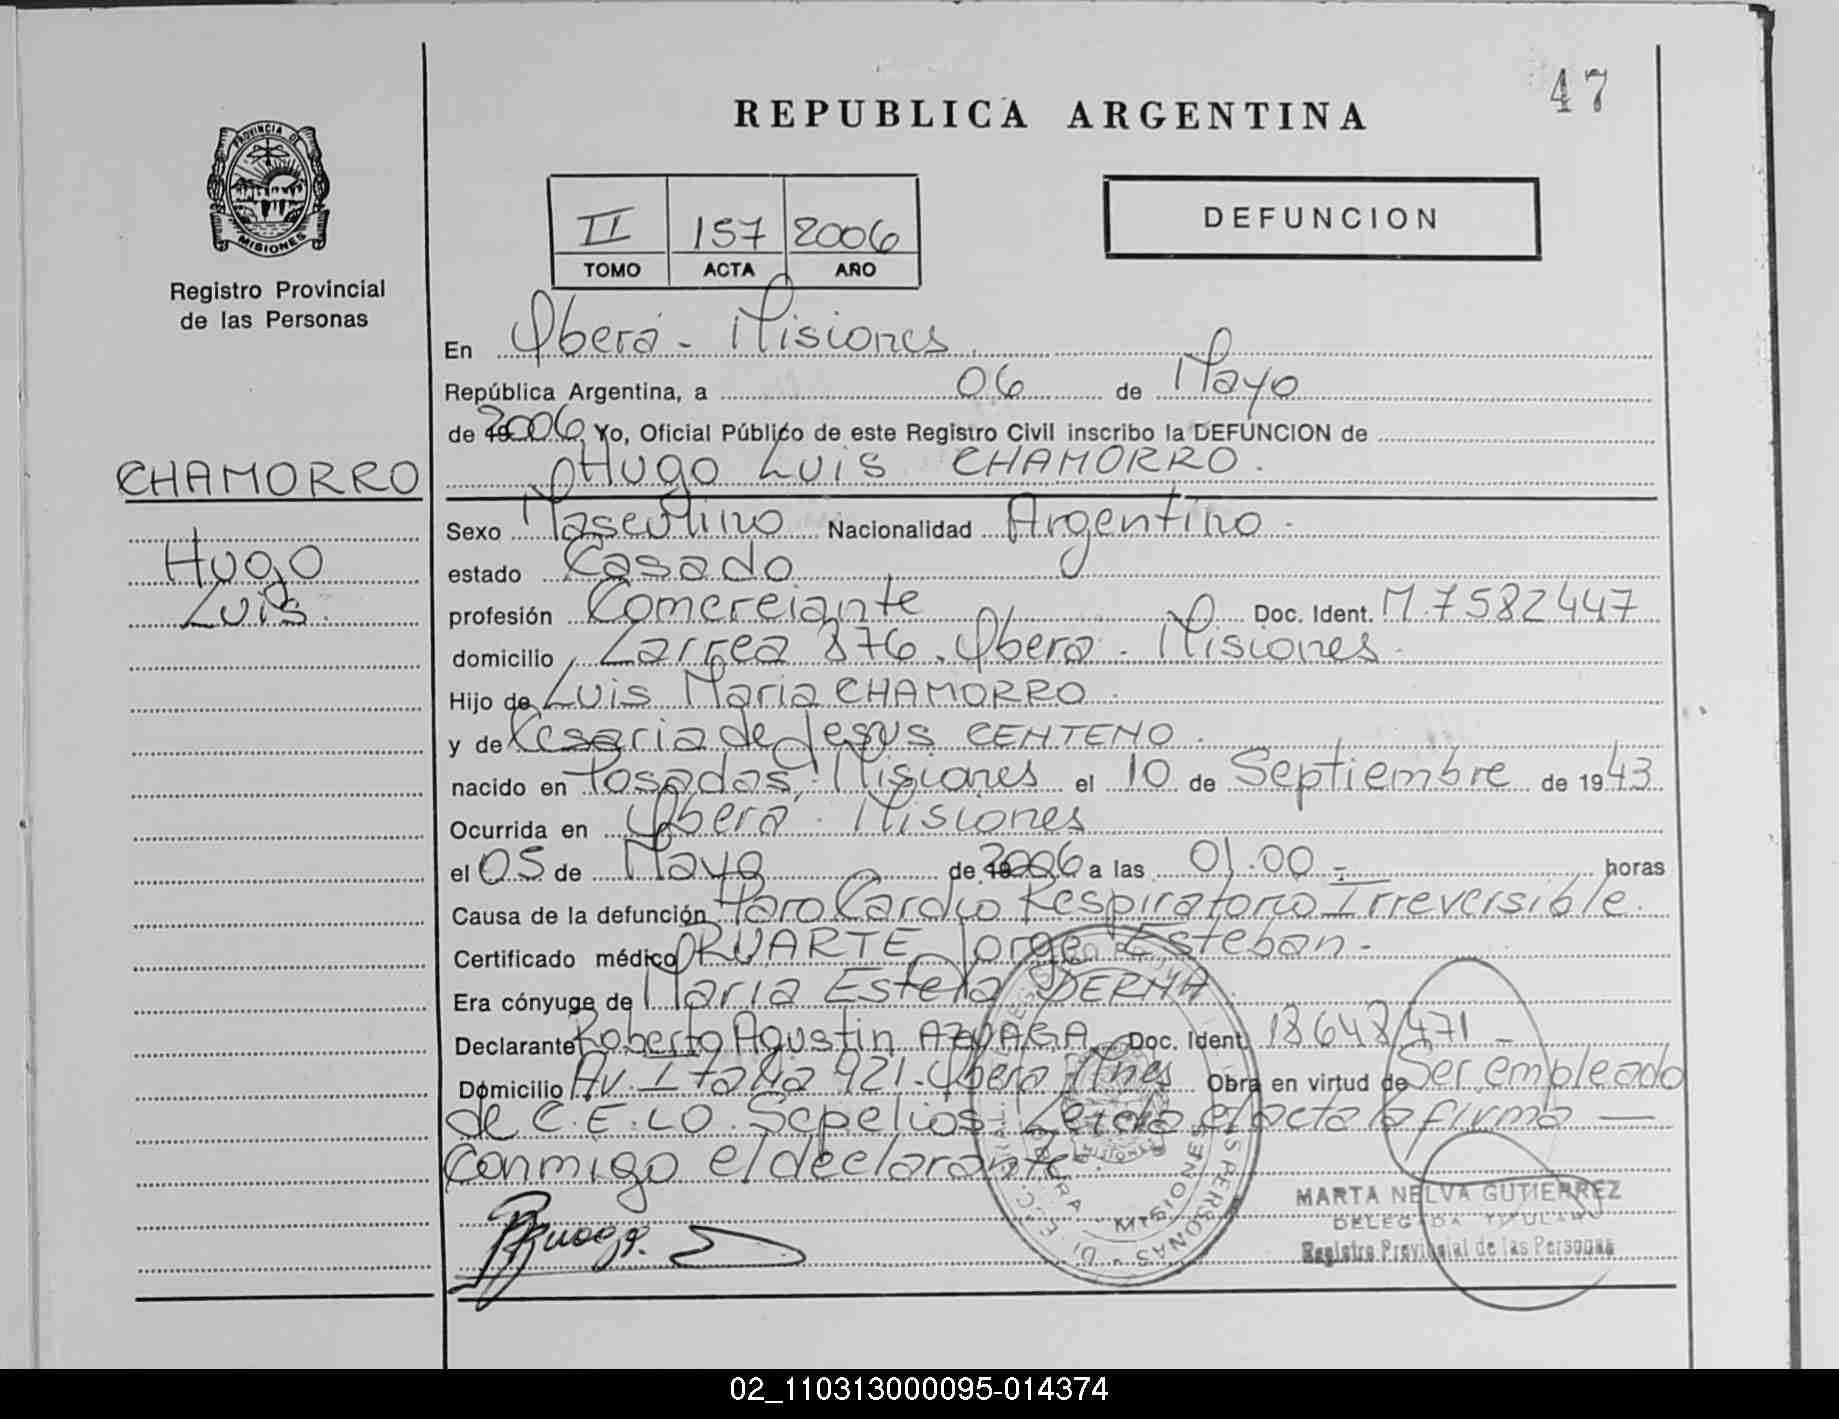 47
REPUBLICA ARGENTINA
PROVINCIA DE
MISIONES
Registro Provincial
de las Personas
II 157 2006
TOMO ACTA AÑO
DEFUNCION
En Oberá - Misiones
República Argentina, a 06 de Mayo
de 2006, Yo, Oficial Público de este Registro Civil inscribo la DEFUNCION de
Hugo Luis CHAMORRO.
CHAMORRO
Hugo
Luis.
Sexo Masculino Nacionalidad Argentino.
estado Casado
profesión Comerciante Doc. Ident. M.7582447
domicilio Larrea 876. Oberá - Misiones.
Hijo de Luis Maria CHAMORRO.
y de Cesaria de Jesus CENTENO.
nacido en Posadas, Misiones el 10 de Septiembre de 1943
Ocurrida en Oberá - Misiones
el 05 de Mayo de 2006 a las 01.00.- horas
Causa de la defunción Paro Cardio Respiratorio Irreversible.
Certificado médico DUARTE Jorge Esteban.-
Era cónyuge de Maria Estela
Declarante Roberto Agustin AZUAGA Doc. Ident. 18648471 -
Domicilio Av. Italia 921. Oberá Mnes Obra en virtud de Ser empleado
de C.E.L.O. Sepelios Leída el acta la firma —
conmigo el declarante.
MARTA NELVA GUTIERREZ
DELEGADA TITULAR
Registro Provincial de las Personas
02_110313000095-014374